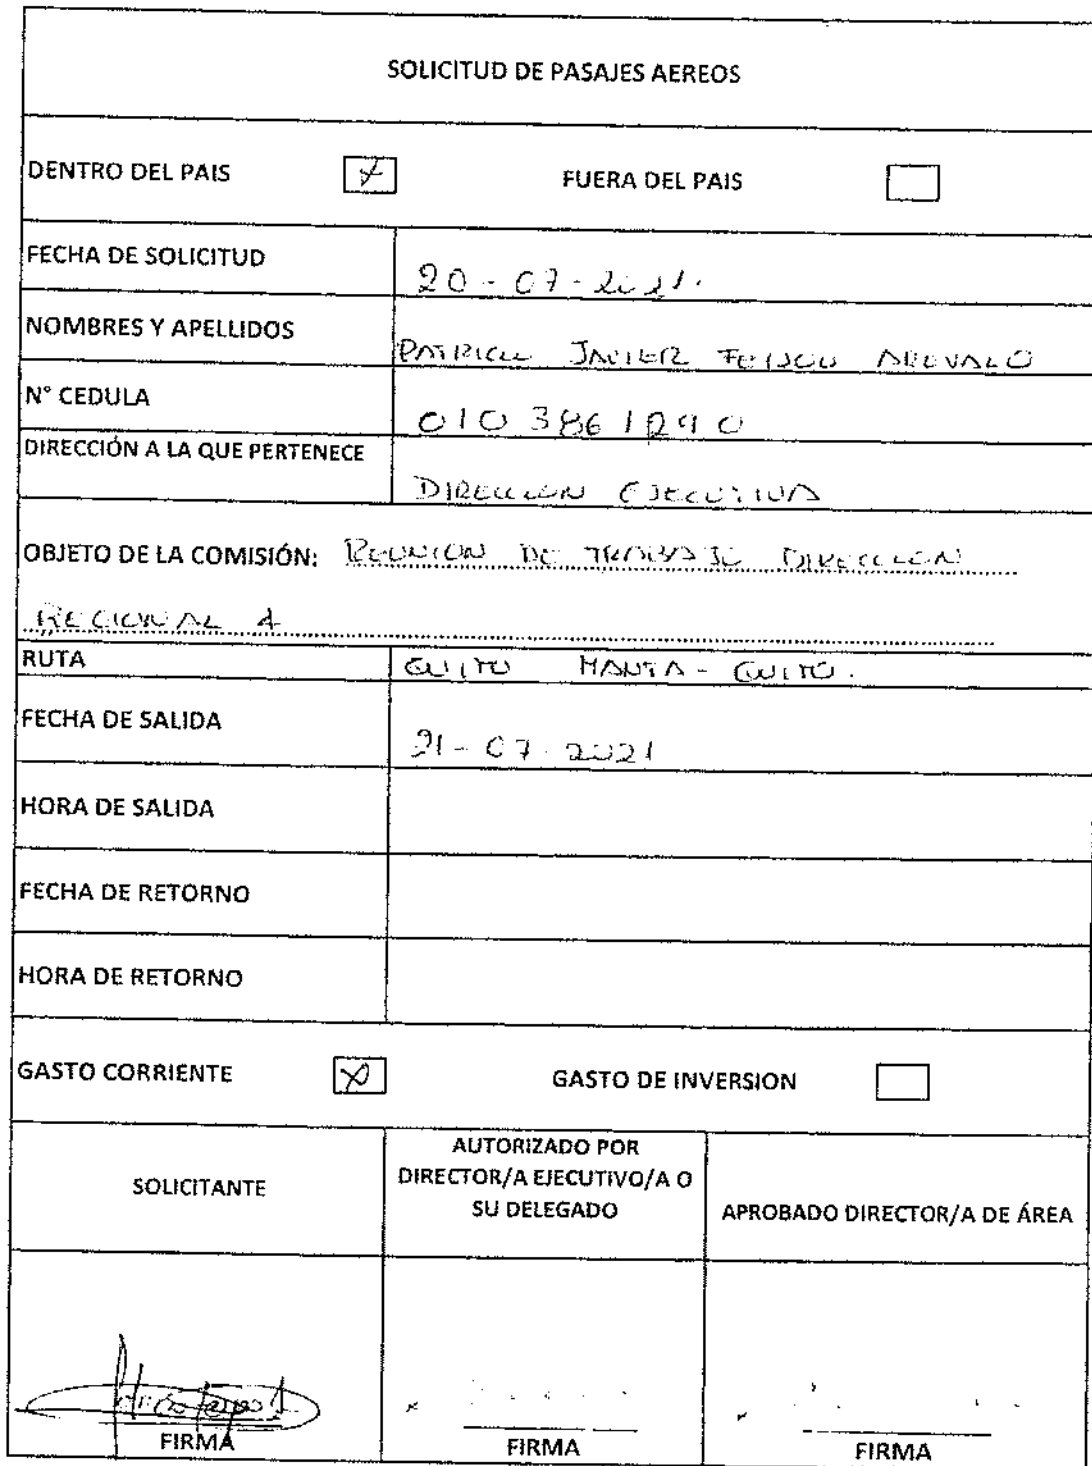 SOLICITUD DE PASAJES AEREOS
DENTRO DEL PAIS X FUERA DEL PAIS
FECHA DE SOLICITUD 20-07-2021.
NOMBRES Y APELLIDOS PATRICIO JAVIER FEIJOO AREVALO
N° CEDULA
DIRECCIÓN A LA QUE PERTENECE DIRECCION EJECUTIVA
OBJETO DE LA COMISIÓN: REUNION DE TRABAJO DIRECCION
REGIONAL 4
RUTA QUITO MANTA - QUITO.
FECHA DE SALIDA 21-07-2021
HORA DE SALIDA
FECHA DE RETORNO
HORA DE RETORNO
GASTO CORRIENTE X GASTO DE INVERSION
SOLICITANTE
AUTORIZADO POR
DIRECTOR/A EJECUTIVO/A O
SU DELEGADO
APROBADO DIRECTOR/A DE ÁREA
FIRMA FIRMA FIRMA